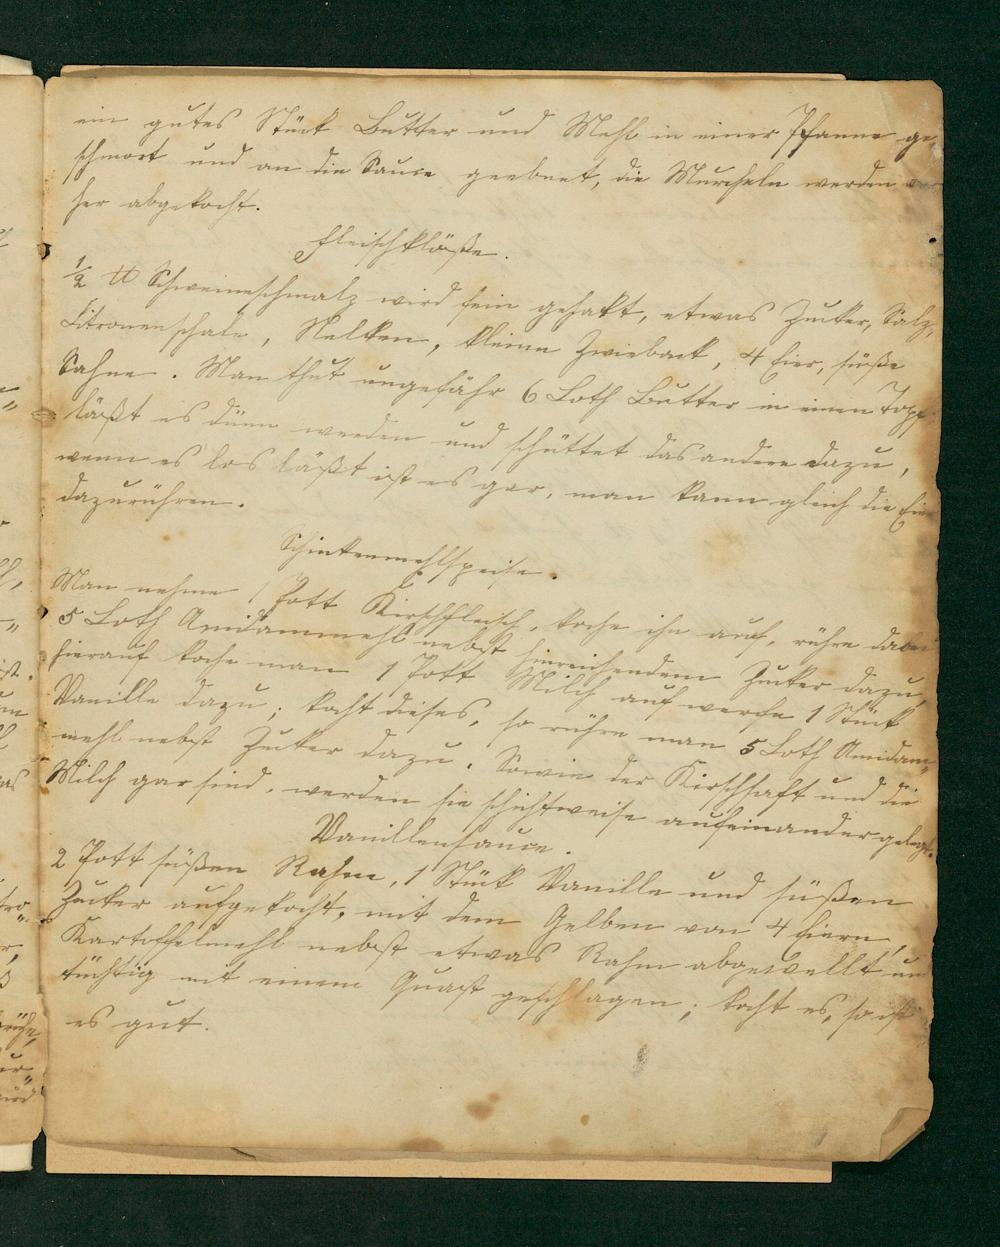 ein gutes Stück Butter und Mehl in einer Pfanne ge
schmort und an die Sauce gethan, die Murcheln werden vor
her abgekocht.
Fleischklöße.
½ ℔ Schweineschmalz wird fein gehakt, etwas Zucker, Salz,
Citronenschale, Nelken, kleinen Zwieback, 4 Eier, süße
Sahne. Man thut ungefähr 6 Loth Butter in einen Topf
läßt es dünn werden und schüttet das andere dazu,
wenn es los läßt ist es gar, man kann gleich die Eier
dazurühren.
Man nehme 1 Pott Kirschfleisch, koche ihn auf, rühre dabei
5 Loth Amidammehl nebst hinreichendem Zucker dazu,
hierauf koche man 1 Pott Milch auf werfe 1 Stück
Vanille dazu; kocht dieses, so rühre man 5 Loth Amidam-
mehl nebst Zucker dazu. Sowie der Kirschsaft und die
Milch gar sind, werden sie schichtweise aufeinander gelegt.
Vanillensauce.
2 Pott süßen Rahm, 1 Stück Vanille und süßen
Zucker aufgekocht, mit dem Gelben von 4 Eiern,
Kartoffelmehl nebst etwas Rahm abgewellt und
tüchtig mit einem Quast geschlagen; kocht es, so ist
es gut.